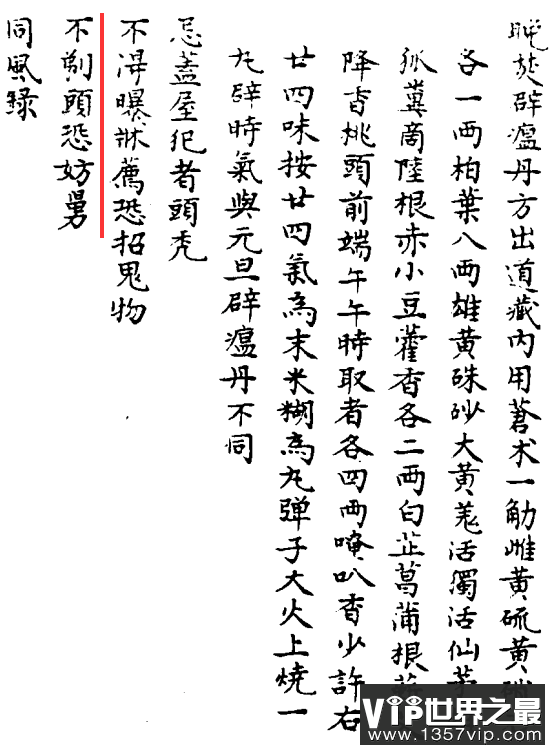 晚焚辟瘟丹方出道藏內用蒼朮一觔雌黃硫黃硝
各一两柏葉八两雄黃硃砂大黃羗活獨活仙茅
狐糞商陸根赤小豆藿香各二两白芷菖蒲根
降香桃頭前端午午時取者各四两唵叭香少許右
廿四味按廿四氣為末米糊為丸弹子大火上燒一
丸辟時氣與元旦辟瘟丹不同
忌蓋屋犯者頭禿
不淂曝牀薦恐招鬼物
不剃頭恐妨舅
同風錄
VIP世界之最
www.1357vip.com